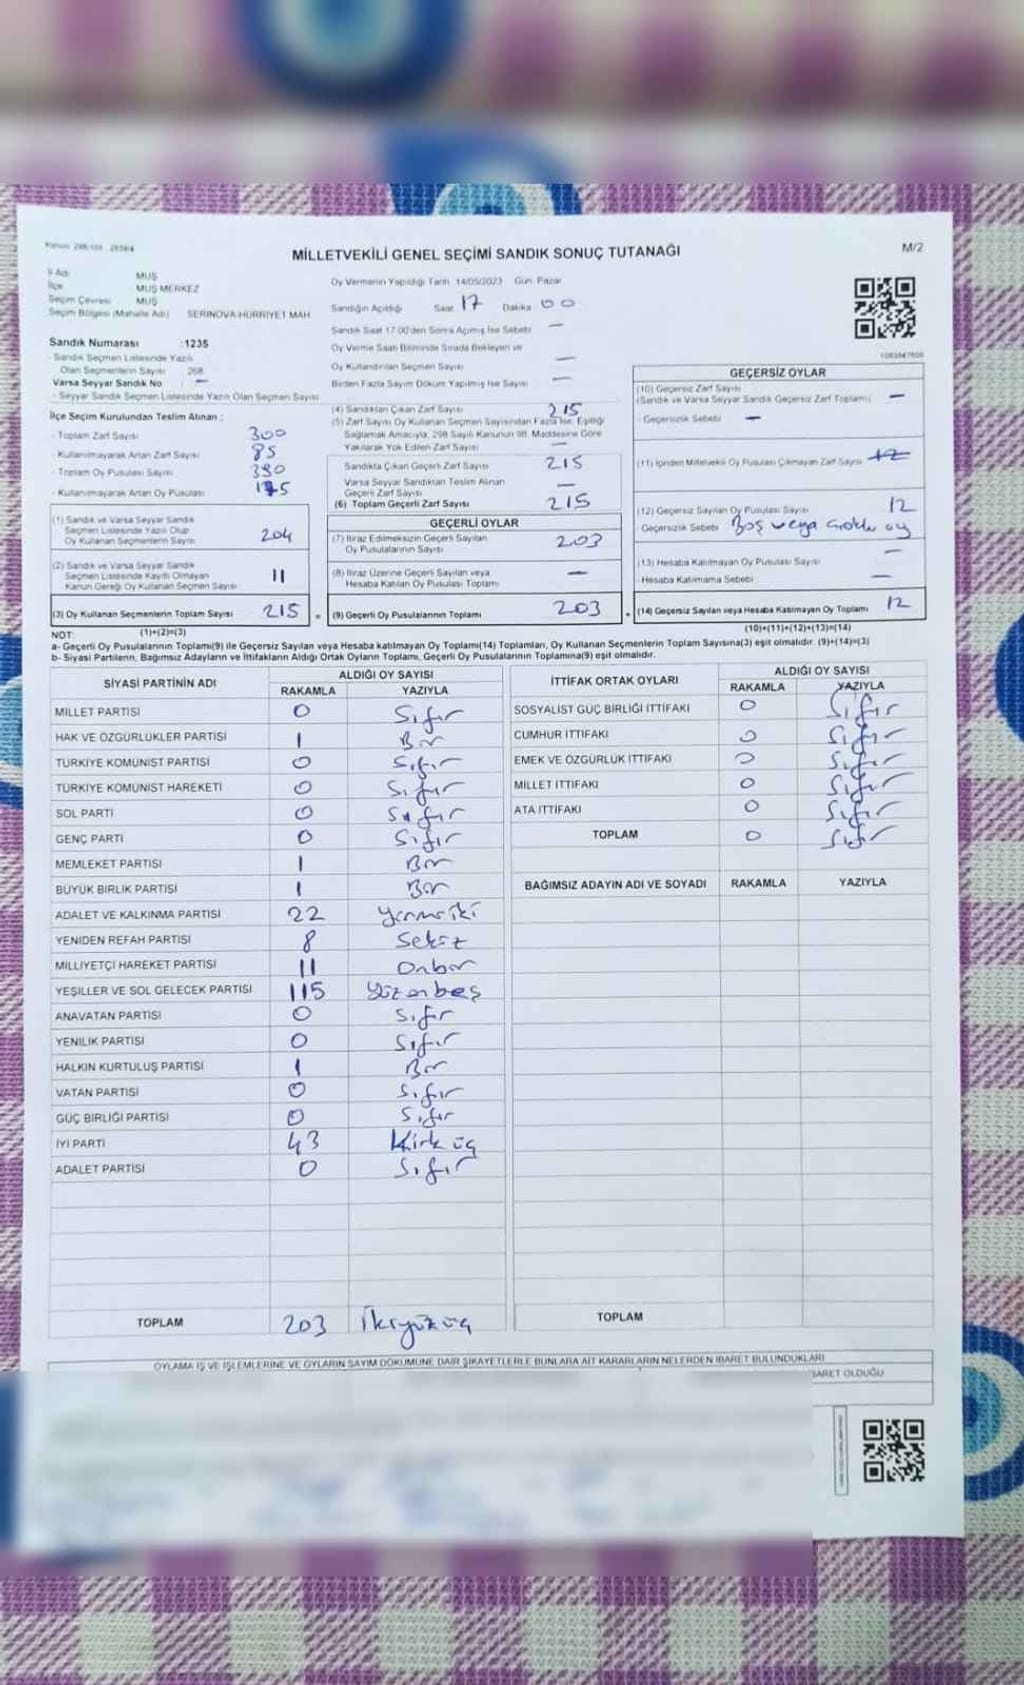 MİLLETVEKİLİ GENEL SEÇİMİ SANDIK SONUÇ TUTANAĞI
M/2
İl Adı MUŞ
İlçe MUŞ MERKEZ
Seçim Çevresi MUŞ
Seçim Bölgesi (Mahalle Adı) SERİNOVA-HÜRRİYET MAH
Sandık Numarası :1235
- Sandık Seçmen Listesinde Yazılı
Olan Seçmenlerin Sayısı 268
Varsa Seyyar Sandık No —
- Seyyar Sandık Seçmen Listesinde Yazılı Olan Seçmen Sayısı
İlçe Seçim Kurulundan Teslim Alınan :
- Toplam Zarf Sayısı 300
- Kullanılmayarak Artan Zarf Sayısı 85
- Toplam Oy Pusulası Sayısı
- Kullanılmayarak Artan Oy Pusulası
(1) Sandık ve Varsa Seyyar Sandık
Seçmen Listesinde Yazılı Olup
Oy Kullanan Seçmenlerin Sayısı 204
(2) Sandık ve Varsa Seyyar Sandık
Seçmen Listesinde Kayıtlı Olmayan
Kanun Gereği Oy Kullanan Seçmen Sayısı 11
(3) Oy Kullanan Seçmenlerin Toplam Sayısı 215
Oy Vermenin Yapıldığı Tarih 14/05/2023 Gün Pazar
Sandığın Açıldığı Saat 17 Dakika 00
Sandık Saat 17.00'den Sonra Açılmış İse Sebebi —
Oy Verme Saati Bitiminde Sırada Bekleyen ve
Oy Kullandırılan Seçmen Sayısı —
Birden Fazla Sayım Döküm Yapılmış İse Sayısı —
(4) Sandıktan Çıkan Zarf Sayısı 215
(5) Zarf Sayısı Oy Kullanan Seçmen Sayısından Fazla İse, Eşitliği
Sağlamak Amacıyla, 298 Sayılı Kanunun 98. Maddesine Göre
Yakılarak Yok Edilen Zarf Sayısı —
Sandıkta Çıkan Geçerli Zarf Sayısı 215
Varsa Seyyar Sandıktan Teslim Alınan
Geçerli Zarf Sayısı —
(6) Toplam Geçerli Zarf Sayısı 215
GEÇERLİ OYLAR
(7) İtiraz Edilmeksizin Geçerli Sayılan
Oy Pusulalarının Sayısı 203
(8) İtiraz Üzerine Geçerli Sayılan veya
Hesaba Katılan Oy Pusulası Toplamı —
(9) Geçerli Oy Pusulalarının Toplamı 203
GEÇERSİZ OYLAR
(10) Geçersiz Zarf Sayısı
(Sandık ve Varsa Seyyar Sandık Geçersiz Zarf Toplamı) —
- Geçersizlik Sebebi —
(11) İçinden Milletvekili Oy Pusulası Çıkmayan Zarf Sayısı
(12) Geçersiz Sayılan Oy Pusulası Sayısı 12
Geçersizlik Sebebi Boş veya
(13) Hesaba Katılmayan Oy Pusulası Sayısı —
- Hesaba Katılmama Sebebi —
(14) Geçersiz Sayılan veya Hesaba Katılmayan Oy Toplamı 12
NOT: (1)+(2)=(3) (10)+(11)+(12)+(13)=(14)
a- Geçerli Oy Pusulalarının Toplamı(9) ile Geçersiz Sayılan veya Hesaba katılmayan Oy Toplamı(14) Toplamları, Oy Kullanan Seçmenlerin Toplam Sayısına(3) eşit olmalıdır. (9)+(14)=(3)
b- Siyasi Partilerin, Bağımsız Adayların ve İttifakların Aldığı Ortak Oyların Toplamı, Geçerli Oy Pusulalarının Toplamına(9) eşit olmalıdır.
SİYASİ PARTİNİN ADI ALDIĞI OY SAYISI
RAKAMLA YAZIYLA
MİLLET PARTİSİ 0 Sıfır
HAK VE ÖZGÜRLÜKLER PARTİSİ 1 Bir
TÜRKİYE KOMÜNİST PARTİSİ 0 Sıfır
TÜRKİYE KOMÜNİST HAREKETİ 0 Sıfır
SOL PARTİ 0 Sıfır
GENÇ PARTİ 0 Sıfır
MEMLEKET PARTİSİ 1 Bir
BÜYÜK BİRLİK PARTİSİ 1 Bir
ADALET VE KALKINMA PARTİSİ 22 Yirmiiki
YENİDEN REFAH PARTİSİ 8 Sekiz
MİLLİYETÇİ HAREKET PARTİSİ 11 Onbir
YEŞİLLER VE SOL GELECEK PARTİSİ 115 Yüzonbeş
ANAVATAN PARTİSİ 0 Sıfır
YENİLİK PARTİSİ 0 Sıfır
HALKIN KURTULUŞ PARTİSİ 1 Bir
VATAN PARTİSİ 0 Sıfır
GÜÇ BİRLİĞİ PARTİSİ 0 Sıfır
İYİ PARTİ 43 Kırk üç
ADALET PARTİSİ 0 Sıfır
TOPLAM 203 İkiyüzüç
İTTİFAK ORTAK OYLARI ALDIĞI OY SAYISI
RAKAMLA YAZIYLA
SOSYALİST GÜÇ BİRLİĞİ İTTİFAKI 0 Sıfır
CUMHUR İTTİFAKI 0 Sıfır
EMEK VE ÖZGÜRLÜK İTTİFAKI 0 Sıfır
MİLLET İTTİFAKI 0 Sıfır
ATA İTTİFAKI 0 Sıfır
TOPLAM 0 Sıfır
BAĞIMSIZ ADAYIN ADI VE SOYADI RAKAMLA YAZIYLA
TOPLAM
OYLAMA İŞ VE İŞLEMLERİNE VE OYLARIN SAYIM DÖKÜMÜNE DAİR ŞİKAYETLERLE BUNLARA AİT KARARLARIN NELERDEN İBARET BULUNDUKLARI
OLDUĞU